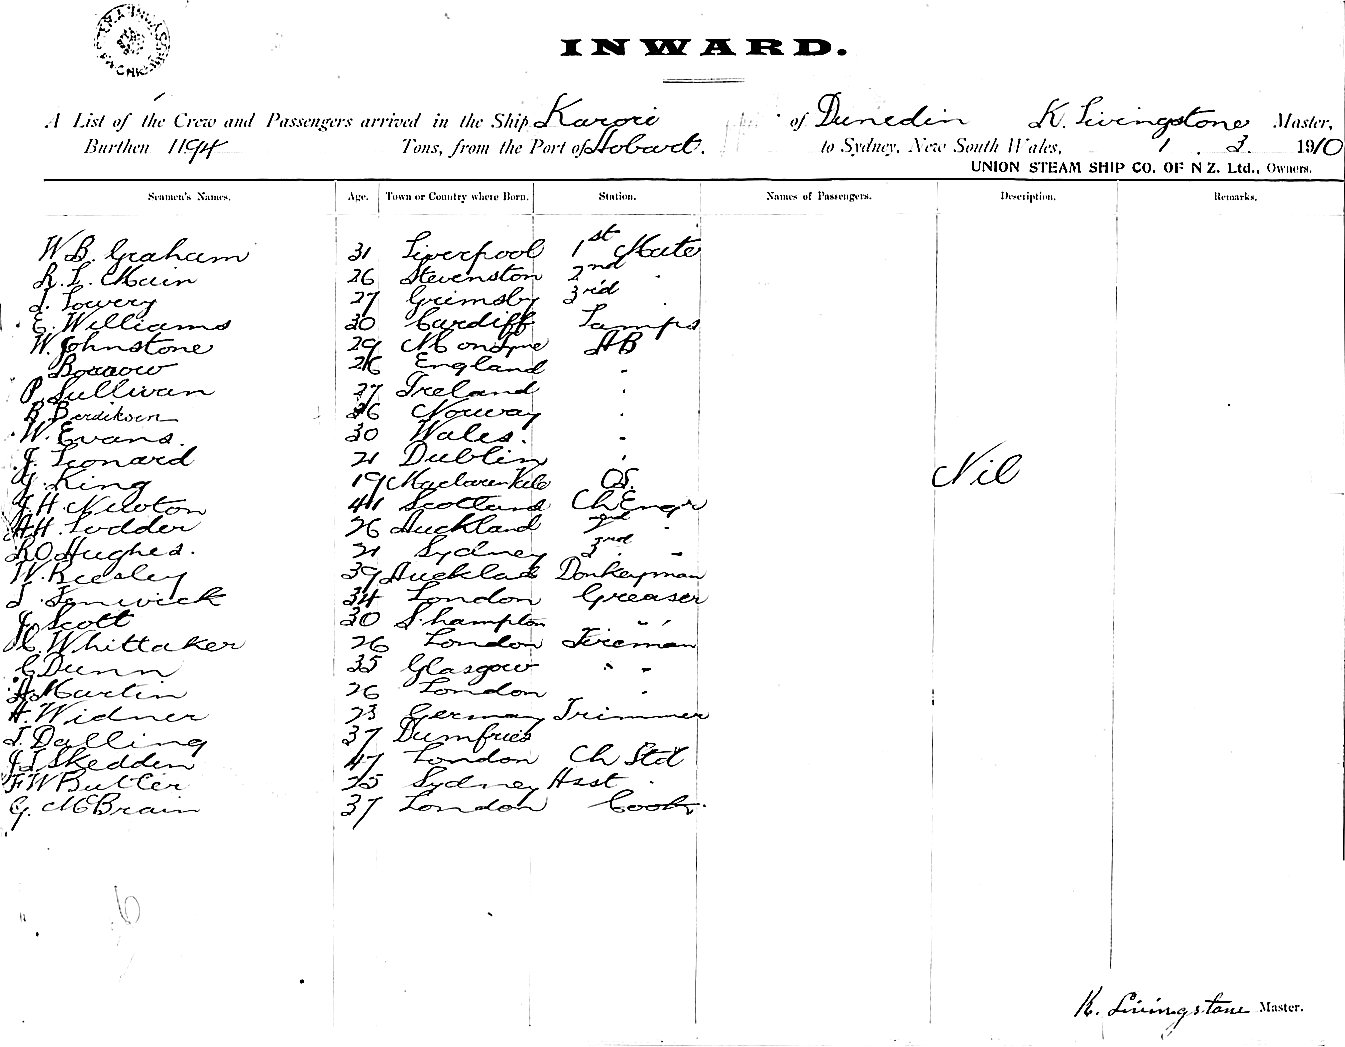 INWARD.
A List of the Crew and Passengers arrived in the Ship Karori of Dunedin K. Livingstone Master,
Burthen 1194 Tons, from the Port of Hobart. to Sydney, New South Wales, 1 . 3. 1910
UNION STEAM SHIP CO. OF N Z. Ltd., Owners.
Seamen's Names. Age. Town or Country where Born. Station. Names of Passengers. Description. Remarks.
W B. Graham 31 Liverpool 1st Mate
R. L. Main 26 Stevenston 2nd "
J. Lowery 27 Grimsby 3rd
E. Williams 30 Cardiff Lamps
W. Johnstone 29 AB
Borrow 26 England "
P. Sullivan 27 Ireland "
B Berdiksen 36 Norway "
W. Evans. 30 Wales. "
J. Leonard 21 Dublin "
G. King 19 OS.
Nil
J H Newton 41 Scotland Ch Engr
AH. Lodder 26 Auckland 2nd "
R O Hughes. 21 Sydney 3rd "
W. Beesley 39 Aucklad Donkeyman
J. Fenwick 34 London Greaser
J. Scott 30 S.hampton " "
C. Whittaker 26 London Fireman
C Dunn 35 Glasgow " "
A Martin 26 London "
H. Widner 23 Germany Trimmer
J. Dalling 37 Dumfries
J L Skedden 47 London Ch Std
F W Butler 25 Sydney Asst "
G. McBrain 37 London Cook.
K. Livingstone Master.